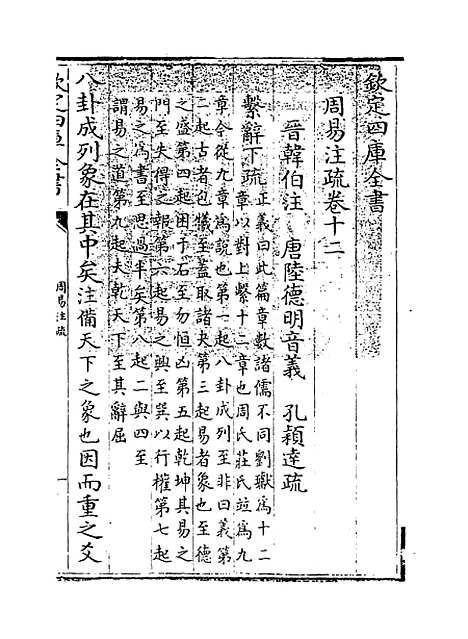 欽定四庫全書
周易注疏卷十二
晉韓伯注 唐陸德明音義 孔穎達疏
繫辭下疏正義曰此篇章數諸儒不同劉瓛為十二
章以對上繫十二章也周氏莊氏竝為九
章今從九章為說也第一起八卦成列至非曰義第
二起古者包犧至蓋取諸夬第三起易者象也至德
之盛第四起困于石至勿恒凶第五起乾坤其易之
門至失得之報第六起易之興至巽以行權第七起
易之為書至思過半矣第八起二與四至
謂易之道第九起夫乾天下至其辭屈
八卦成列象在其中矣注備天下之象也因而重之爻
欽定四庫全書
周易注疏
一